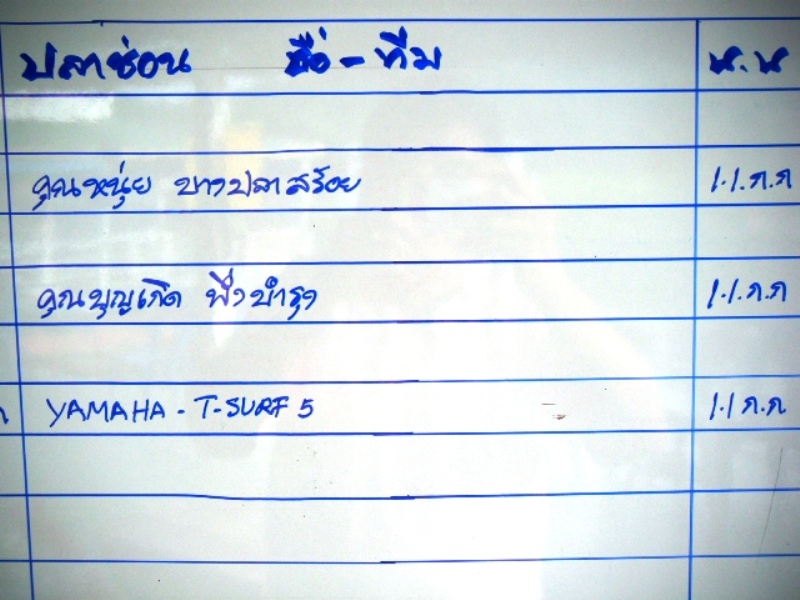 ปลาช่อน ชื่อ - ทีม น.น
คุณหนุ่ย บางปลาสร้อย 1.1.ก.ก
คุณบุญเกิด พึ่งบำรุง 1.1.ก.ก
YAMAHA - T-SURF 5 1.1 ก.ก